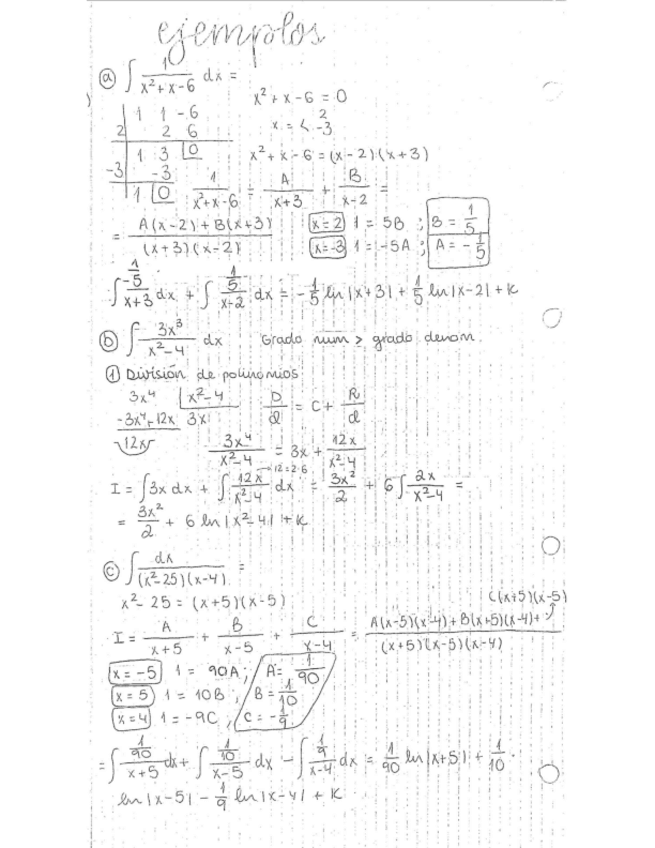 ejemplos
ⓐ ∫ 1/(x²+x-6) dx =
x²+x-6 = 0
1 1 -6
x = < 2 -3
2 | 2 6
1 3 |0
x²+x-6 = (x-2)(x+3)
-3 | -3
1 |0
1/(x²+x-6) = A/(x+3) + B/(x-2) =
= (A(x-2)+B(x+3))/((x+3)(x-2)) x=2 1 = 5B ; B = 1/5
x=-3 1 = -5A ; A = -1/5
∫ (-1/5)/(x+3) dx + ∫ (1/5)/(x-2) dx = -1/5 ln|x+3| + 1/5 ln|x-2| + K
ⓑ ∫ 3x³/(x²-4) dx Grado num > grado denom.
① División de polinomios
3x⁴ |x²-4 D/d = C + R/d
-3x⁴+12x 3x
12x
3x⁴/(x²-4) = 3x + 12x/(x²-4)
→12=2·6
I = ∫3x dx + ∫ 12x/(x²-4) dx = 3x²/2 + 6 ∫ 2x/(x²-4) =
= 3x²/2 + 6 ln|x²-4| + K
ⓒ ∫ dx/((x²-25)(x-4)) =
x²-25 = (x+5)(x-5)
C(x+5)(x-5)
I = A/(x+5) + B/(x-5) + C/(x-4) = (A(x-5)(x-4)+B(x+5)(x-4)+)/((x+5)(x-5)(x-4))
x=-5 1 = 90A ; A = 1/90
x=5 1 = 10B , B = 1/10
x=4 1 = -9C , C = -1/9
= ∫ (1/90)/(x+5) dx + ∫ (1/10)/(x-5) dx - ∫ (1/9)/(x-4) dx = 1/90 ln|x+5| + 1/10 ·
ln|x-5| - 1/9 ln|x-4| + K